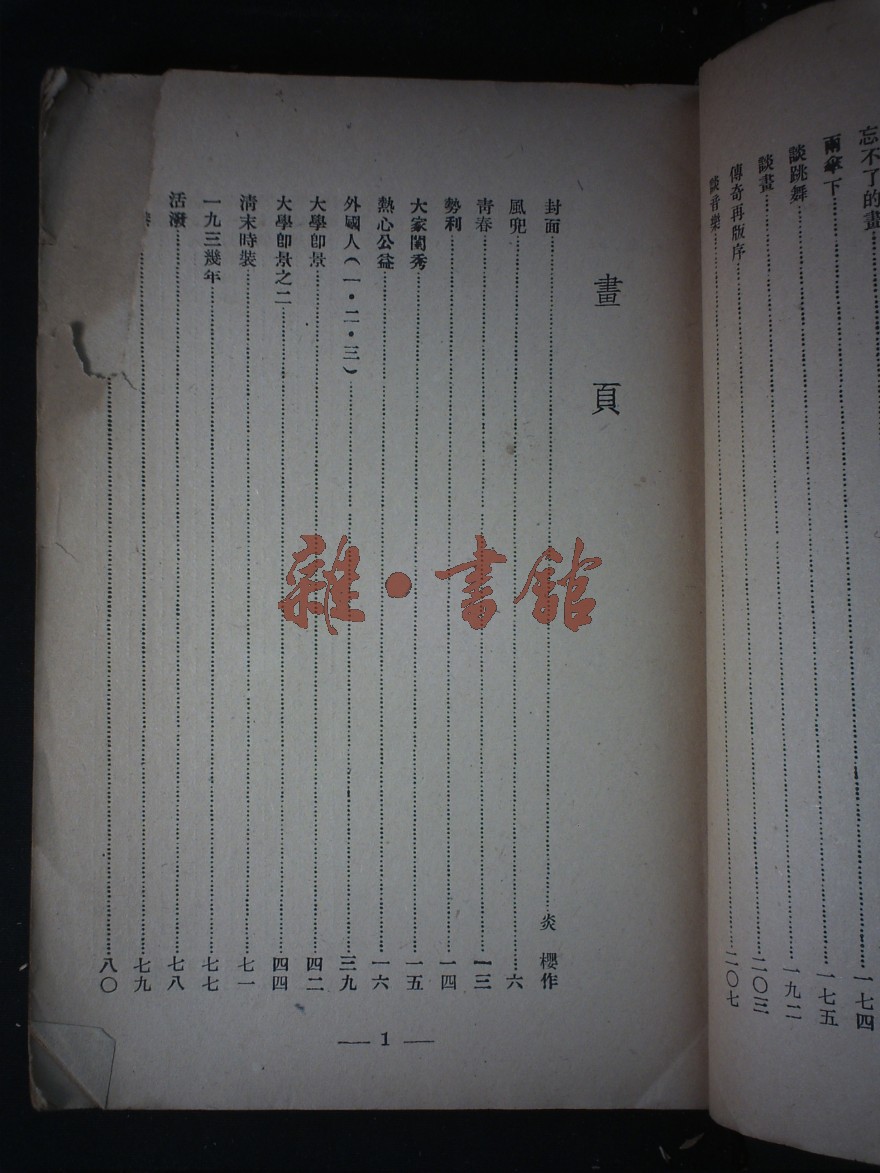 忘不了的畫……一七四
雨傘下……一七五
談跳舞……一九二
談畫……二〇三
傳奇再版序
談音樂……二〇七
畫頁
封面……炎櫻作
風兜……六
青春……一三
勢利……一四
大家閨秀……一五
熱心公益……一六
外國人(一·二·三)……三九
大學卽景……四二
大學卽景之二……四四
清末時裝……七一
一九三幾年……七七
活潑……七八
……七九
……八〇
— 1 —
雜·書館